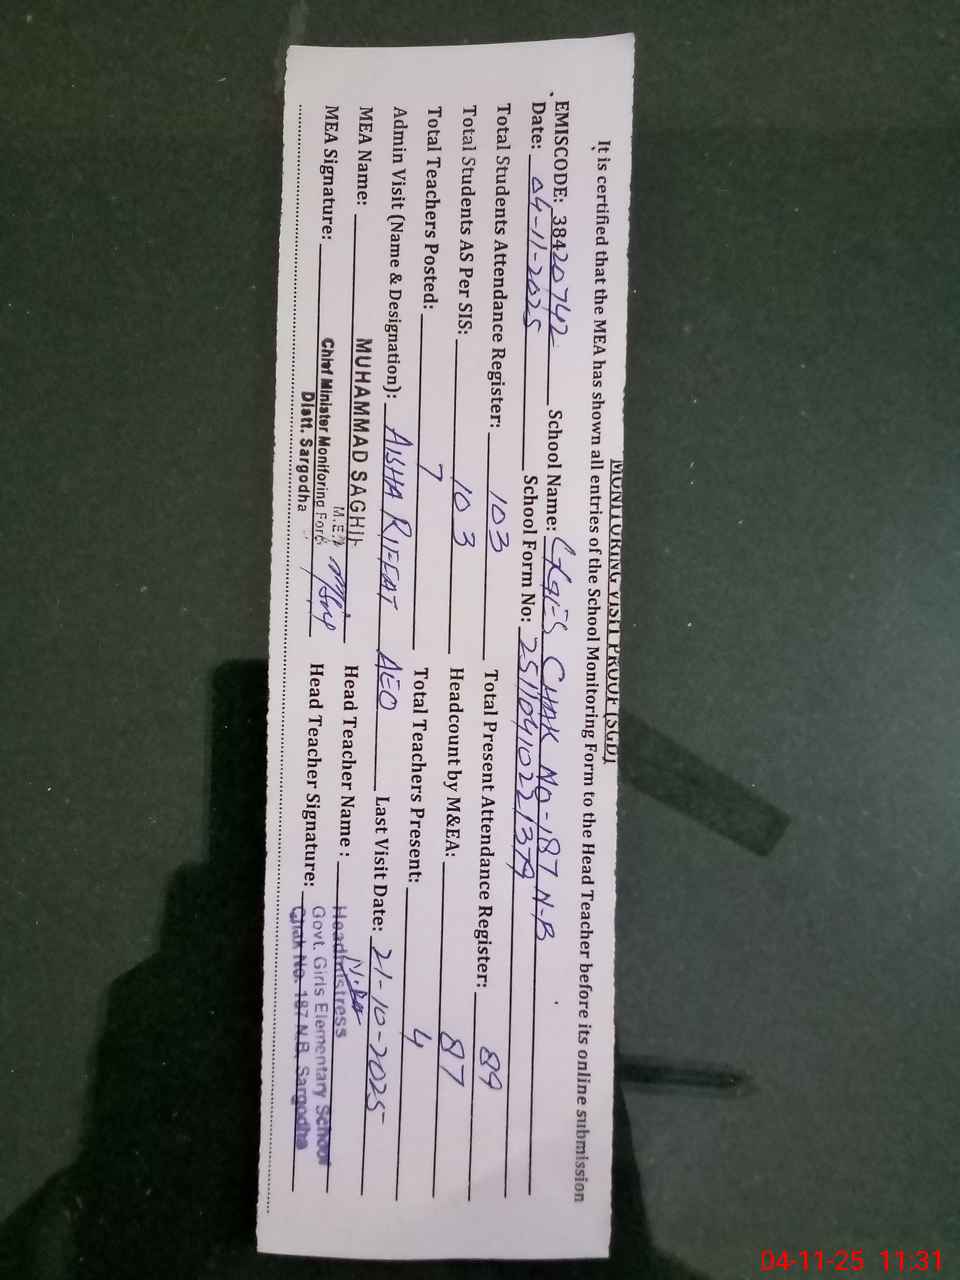 MONITORING VISIT PROOF (SGD)
It is certified that the MEA has shown all entries of the School Monitoring Form to the Head Teacher before its online submission
EMISCODE: 38420742 School Name: GGES CHAK NO-187 N-B
Date: 04-11-2025 School Form No: 25110410221379
Total Students Attendance Register: 103 Total Present Attendance Register: 89
Total Students AS Per SIS: 103 Headcount by M&EA: 87
Total Teachers Posted: 7 Total Teachers Present: 4
Admin Visit (Name & Designation): AISHA RIFFAT AEO Last Visit Date: 21-10-2025
MEA Name: MUHAMMAD SAGHIR Head Teacher Name :
M.E.A
MEA Signature: Chief Minister Monitoring Force Head Teacher Signature:
Distt. Sargodha
Headmistress
Govt. Girls Elementary School
Chak No. 187 N.B. Sargodha
04-11-25 11:31